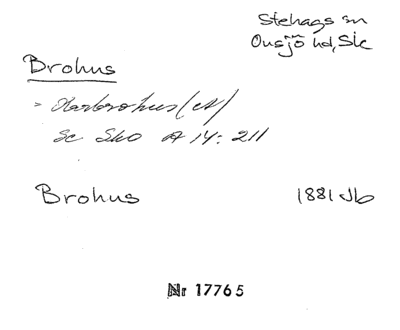 Stehags sn
Onsjö hd, Sk
Brohus
= Karbrohus (A)
Sc Sko A 14: 211
Brohus 1881 Jb
Nr 17765